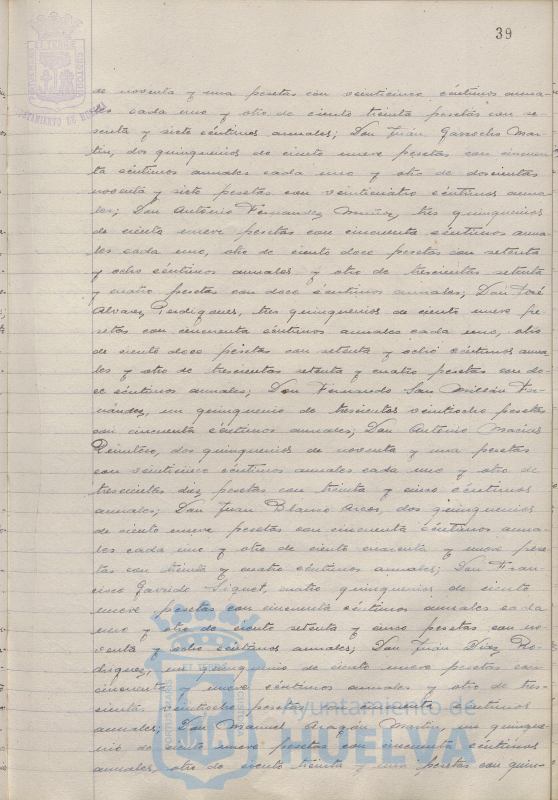 39
AYUNTAMIENTO DE HUELVA
de noventa y una pesetas con veinticinco céntimos anua-
les cada uno y otro de ciento treinta pesetas con se-
senta y siete céntimos anuales; Don Juan Garrocho Mar-
tín, dos quinquenios de ciento nueve pesetas con cincuen-
ta céntimos anuales cada uno y otro de doscientas
noventa y siete pesetas con veinticuatro céntimos anua-
les; Don Antonio Fernandez Muñoz, tres quinquenios
de ciento nueve pesetas con cincuenta céntimos anua-
les cada uno, otro de ciento doce pesetas con setenta
y ocho céntimos anuales y otro de trescientas setenta
y cuatro pesetas con doce céntimos anuales; Don José
Alvarez Perdigones, tres quinquenios de ciento nueve pe-
setas con cincuenta céntimos anuales cada uno, otro
de ciento doce pesetas con setenta y ocho céntimos anua-
les y otro de trescientas setenta y cuatro pesetas con do-
ce céntimos anuales; Don Fernando San Millán Fer-
nández, un quinquenio de trescientas veintiocho pesetas
con cincuenta céntimos anuales; Don Antonio Macias
dos quinquenios de noventa y una pesetas
con veinticinco céntimos anuales cada uno y otro de
trescientas diez pesetas con treinta y cinco céntimos
anuales; Don Juan Blanco Arcos, dos quinquenios
de ciento nueve pesetas con cincuenta céntimos anua-
les cada uno y otro de ciento cuarenta y nueve pese-
tas con treinta y cuatro céntimos anuales; Don Fran-
cisco Garrido cuatro quinquenios de ciento
nueve pesetas con cincuenta céntimos anuales cada
uno y otro de ciento setenta y cinco pesetas con no-
venta y ocho céntimos anuales; Don Juan Díaz Ro-
driguez, un quinquenio de ciento nueve pesetas con
cincuenta y nueve céntimos anuales y otro de tres-
cientas veintiocho pesetas con cincuenta céntimos
anuales; Don Manuel Aragón Martin, un quinque-
nio de ciento nueve pesetas con cincuenta céntimos
anuales, otro de ciento treinta y una pesetas con quin-
Ayuntamiento de
HUELVA